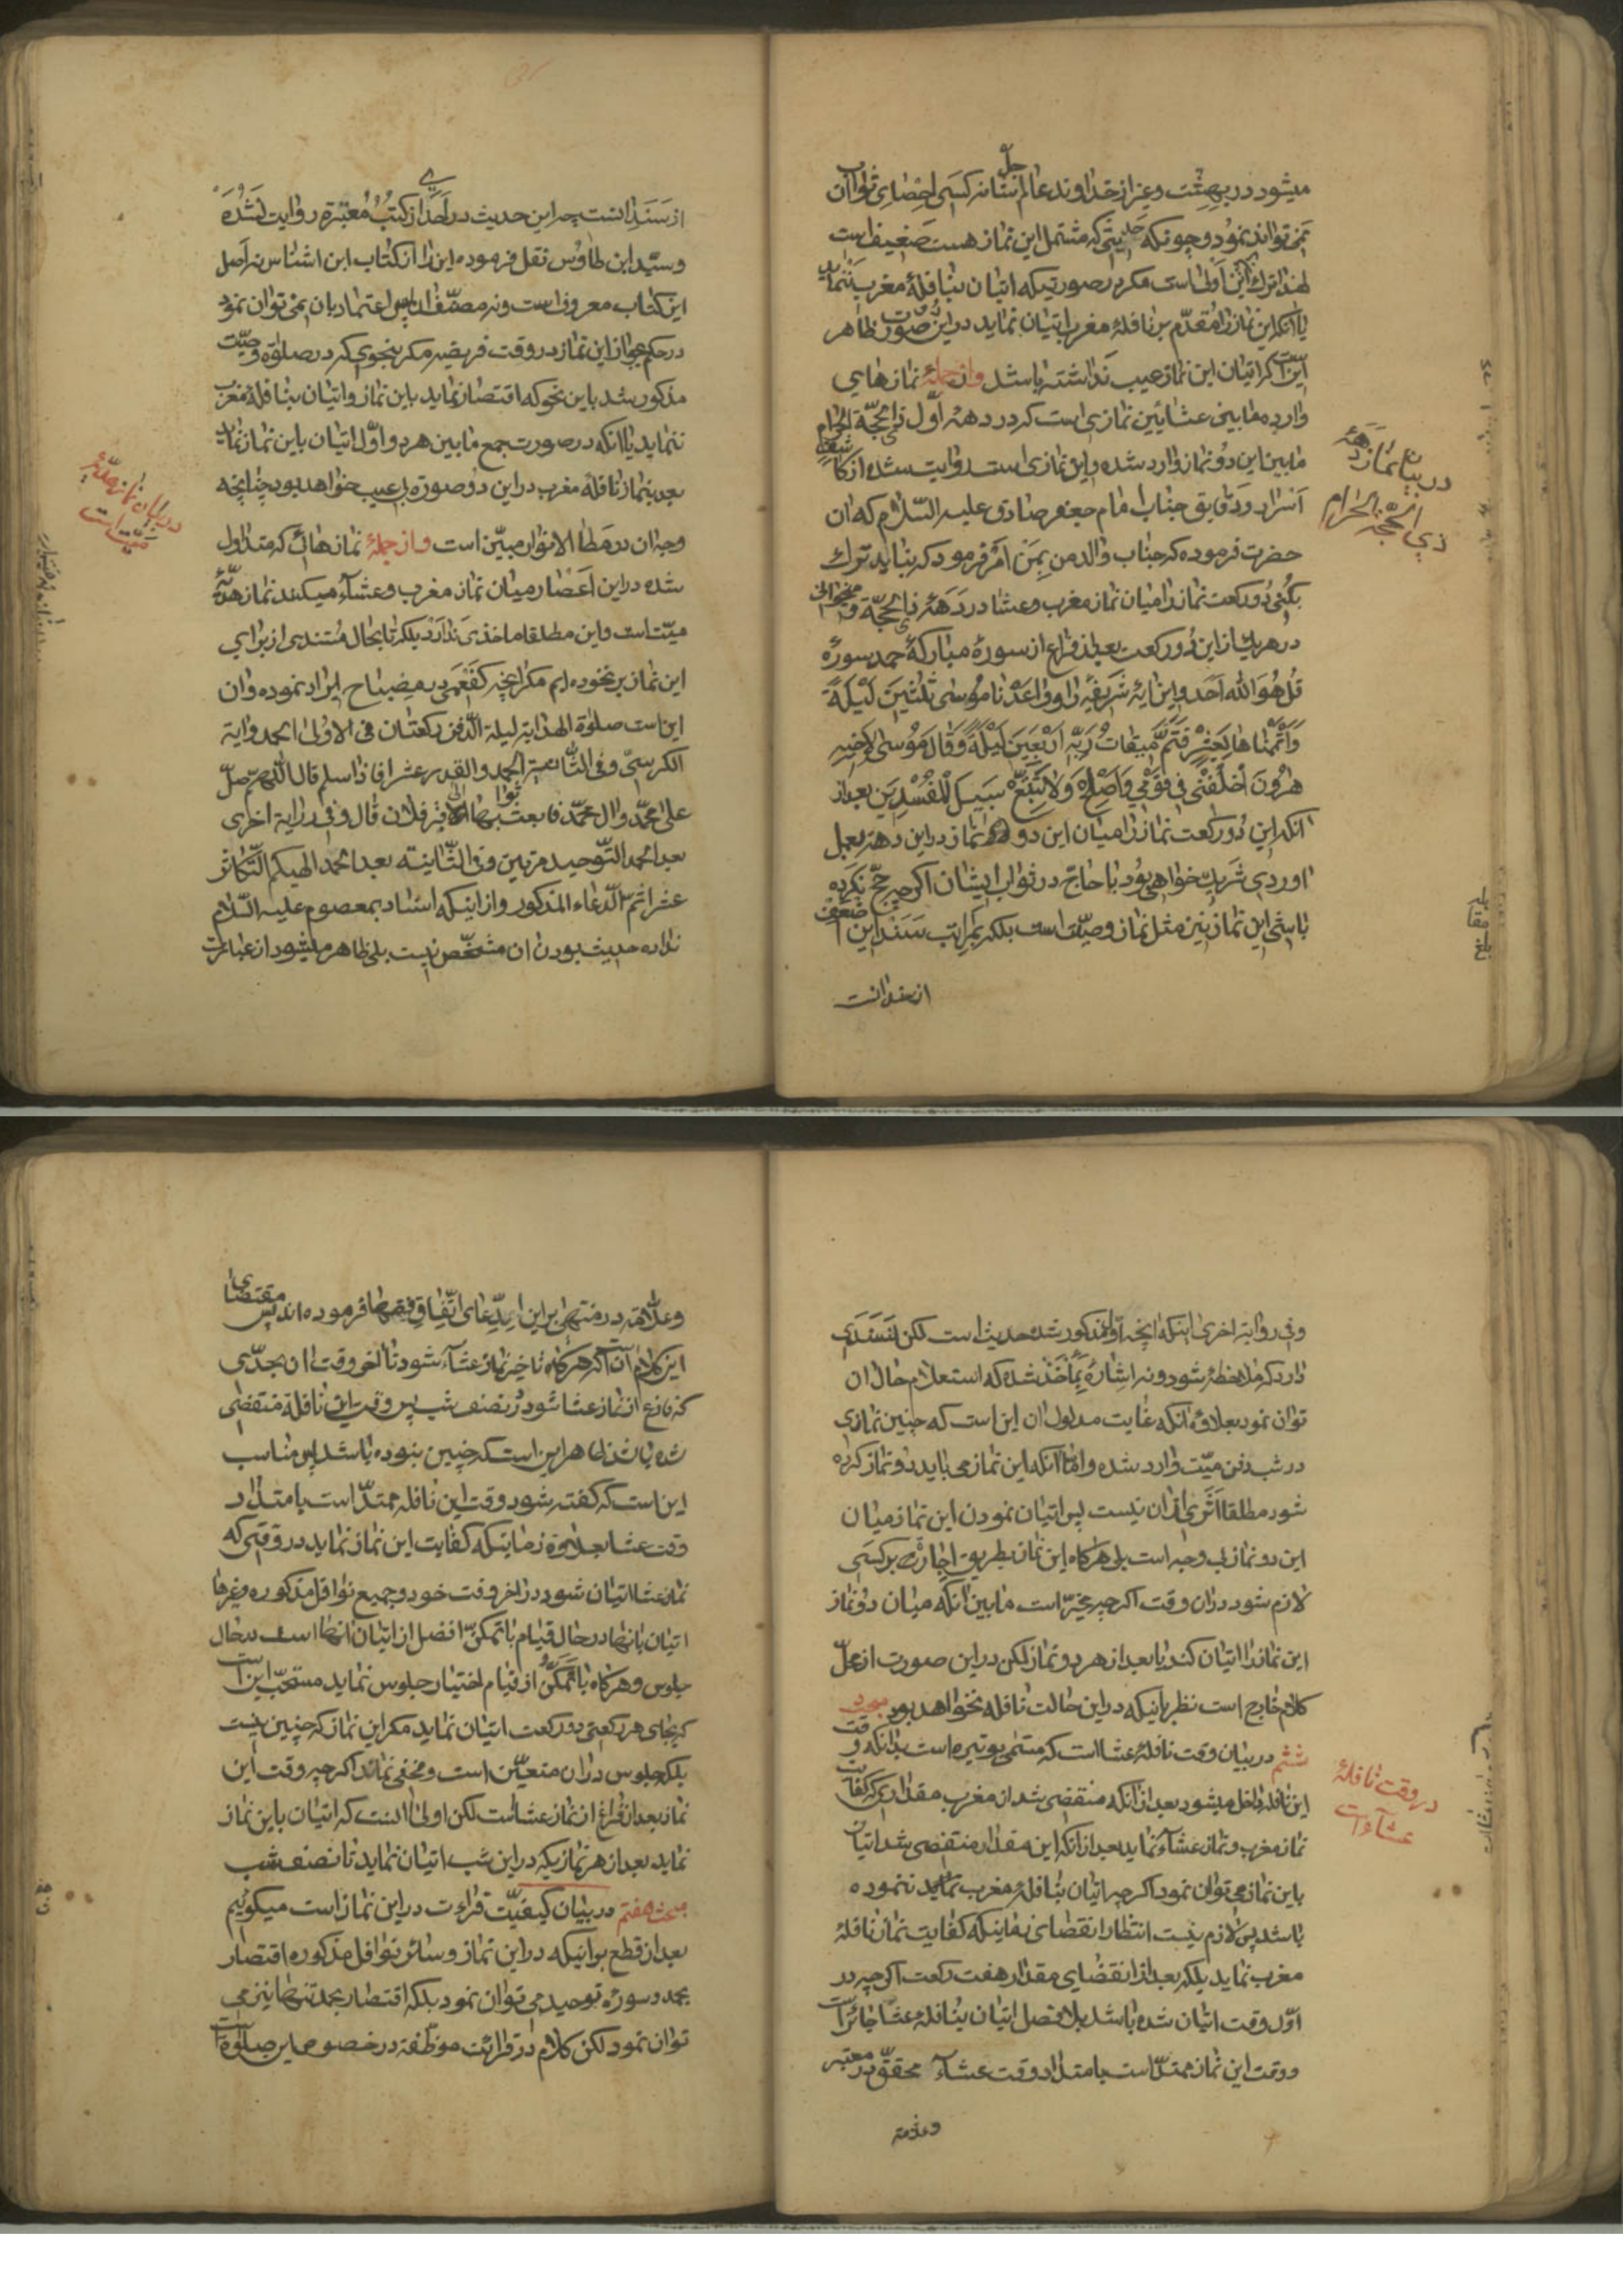 میشود در بهشت و غیر از خداوند عالم جلّ شانه کسی احصای ثواب آن
نمی تواند نمود و چونکه حدیثی که مشتمل این نماز هست ضعیف است
لهذا ترک این اولی است مکر در صورتیکه اتیان بنافلهٔ مغرب ننماید
یا آنکه این نماز را مقدّم بر نافلهٔ مغرب اتیان نماید در این صورت ظاهر
این است که اتیان این نماز عیب نداشته باشد و از جملهٔ نمازهای
وارده مابین عشائین نمازی است که در دههٔ اوّل ذی الحجّة الحرام
مابین این دو نماز وارد شده و این نمازی است روایت شده از کاشف
اسرار و دقایق جناب امام جعفر صادق علیه السّلام که آن
حضرت فرموده که جناب والد من بمن امر فرمود که نباید ترک
بکنی دو رکعت نماز را میان نماز مغرب و عشا در دههٔ ذی الحجّة و میخوانی
در هر یک از این دو رکعت بعد از فراغ از سورهٔ مبارکهٔ حمد سورهٔ
قُل هُوَ الله اَحَد و این آیهٔ شریفه را و واعَدنا موسی ثَلثینَ لَیلَةً
وَاَتمَمناها بِعَشرٍ فَتَمَّ میقاتُ رَبِّه اَربَعینَ لَیلَةً وَقالَ مُوسی لِاَخیه
هرُونَ اخلُفنی فی قَومی وَاَصلِح وَلا تَتَّبِع سَبیلَ المُفسِدینَ بعد از
آنکه این دو رکعت نماز را میان این دو نماز در این دهه بعمل
اوردی شریک خواهی بود با حاجّ در ثواب ایشان اکر چه حجّ نکرده
باشی این نماز نیز مثل نماز وصیّت است بلکه بمراتب سند این اضعف
از سند انست
در بیان نماز دههٔ
ذی الحجّة الحرام
بلغ مقابله
از سَنَد انست چه این حدیث در احدی از کتب معتبره روایت نشده
و سیّد ابن طاوس نقل فرموده این را از کتاب ابن اشناس نه اصل
این کتاب معروف است و نه مصنّف ان پس اعتماد بان نمی توان نمود
در حکم بجواز این نماز در وقت فریضه مکر بنحوی که در صلوة وصیّت
مذکور شد باین نحو که اقتصار نماید باین نماز و اتیان بنافلهٔ مغرب
ننماید یا انکه در صورت جمع مابین هر دو اوّل اتیان باین نماز نماید
بعد بنماز نافلهٔ مغرب در این دو صورة بی عیب خواهد بود چنانچه
وجه ان در مطالع الانوار مبیّن است و از جملهٔ نمازهائی که متداول
شده در این اعصار میان نماز مغرب و عشاء میکنند نماز هدیّهٔ
میّت است و این مطلقا ماخذی ندارد بلکه تا بحال مستندی از برای
این نماز بر نخورده ایم مکر انچه کفعمی در مصباح ایراد نموده و ان
این است صلوة الهدایة لیلة الدّفن رکعتان فی الاولی الحمد و ایة
الکرسیّ و فی الثّانیة الحمد و القدر عشرا فاذا سلم قال اللهمّ صلّ
علی محمّد و ال محمّد فابعث ثوابها الی قبر فلان قال و فی روایة اخری
بعد الحمد التّوحید مرتین و فی الثّانیة بعد الحمد الهیکم التّکاثر
عشرا ثم الدّعاء المذکور و از اینکه اسناد بمعصوم علیه السّلام
نداده حدیث بودن ان مشخّص نیست بلی ظاهر میشود از عبارت
در بیان نماز هدیّهٔ
میّت است
و فی روایة اخری اینکه انچه اوّلا مذکور شده حدیث است لکن نه سندی
دارد که ملاحظه شود و نه اشاره بماخذ شده که استعلام حال ان
توان نمود بعلاوه انکه غایت مدلول ان این است که چنین نمازی
در شب دفن میّت وارد شده و امّا انکه این نماز می باید دو نماز کرده
شود مطلقا اثری از ان نیست پس اتیان نمودن این نماز میان
این دو نماز بی وجه است بلی هر کاه این نماز بطریق اجاره بر کسی
لازم شود در ان وقت اکر چه مخیّر است مابین انکه میان دو نماز
این نماز را اتیان کند یا بعد از هر دو نماز لکن در این صورت از محلّ
کلام خارج است نظر باینکه در این حالت نافله نخواهد بود مبحث
ششم در بیان وقت نافلهٔ عشا است که مسمّی بوتیره است بدانکه وقت
این نافله داخل میشود بعد از انکه منقضی شد از مغرب مقداری که کفایت
نماز مغرب و نماز عشاء نماید بعد از انکه این مقدار منقضی شد اتیان
باین نماز می توان نمود اکر چه اتیان بنافلهٔ مغرب ننموده
باشد پس لازم نیست انتظار انقضای زمانیکه کفایت نماز نافلهٔ
مغرب نماید بلکه بعد از انقضای مقدار هفت رکعت اکر چه در
اوّل وقت اتیان شده باشد بلافصل اتیان بنافلهٔ عشا جائز است
و وقت این نماز ممتدّ است بامتداد وقت عشاء محقّق در معتبر
و علامه
در وقت نافلهٔ
عشاء است
و علّامه در منتهی بر این ادّعای اتّفاق فقها فرموده اند پس مقتضای
این کلام آنکه هر کاه تاخیر نماز عشاء شود تا آخر وقت ان بحدّی
که فارغ از نماز عشا شود در نصف شب پس وقت این نافله منقضی
شده باشد ظاهر این است که چنین نبوده باشد پس مناسب
این است که کفته شود وقت این نافله ممتدّ است بامتداد
وقت عشا بعلاوه زمانیکه کفایت این نماز نماید در وقتی که
نماز عشا اتیان شود در اخر وقت خود و جمیع نوافل مذکوره و غیرها
اتیان بانها در حال قیام با تمکّن افضل از اتیان انها است در حال
جلوس و هرکاه با تمکّن از قیام اختیار جلوس نماید مستحبّ این است
که بجای هر رکعتی دو رکعت اتیان نماید مکر این نماز که چنین نیست
بلکه جلوس در ان متعیّن است و مخفی نماند اکر چه وقت این
نماز بعد از فراغ از نماز عشاست لکن اولی انست که اتیان باین نماز
نماید بعد از هر نمازیکه در این شب اتیان نماید تا نصف شب
مبحث هفتم در بیان کیفیّت قراءت در این نماز است میکوئیم
بعد از قطع بر اینکه در این نماز و سائر نوافل مذکوره اقتصار
بحمد و سورهٔ توحید می توان نمود بلکه اقتصار بحمد تنها نیز می
توان نمود لکن کلام در قرائت موظّفه در خصوص این صلوة است